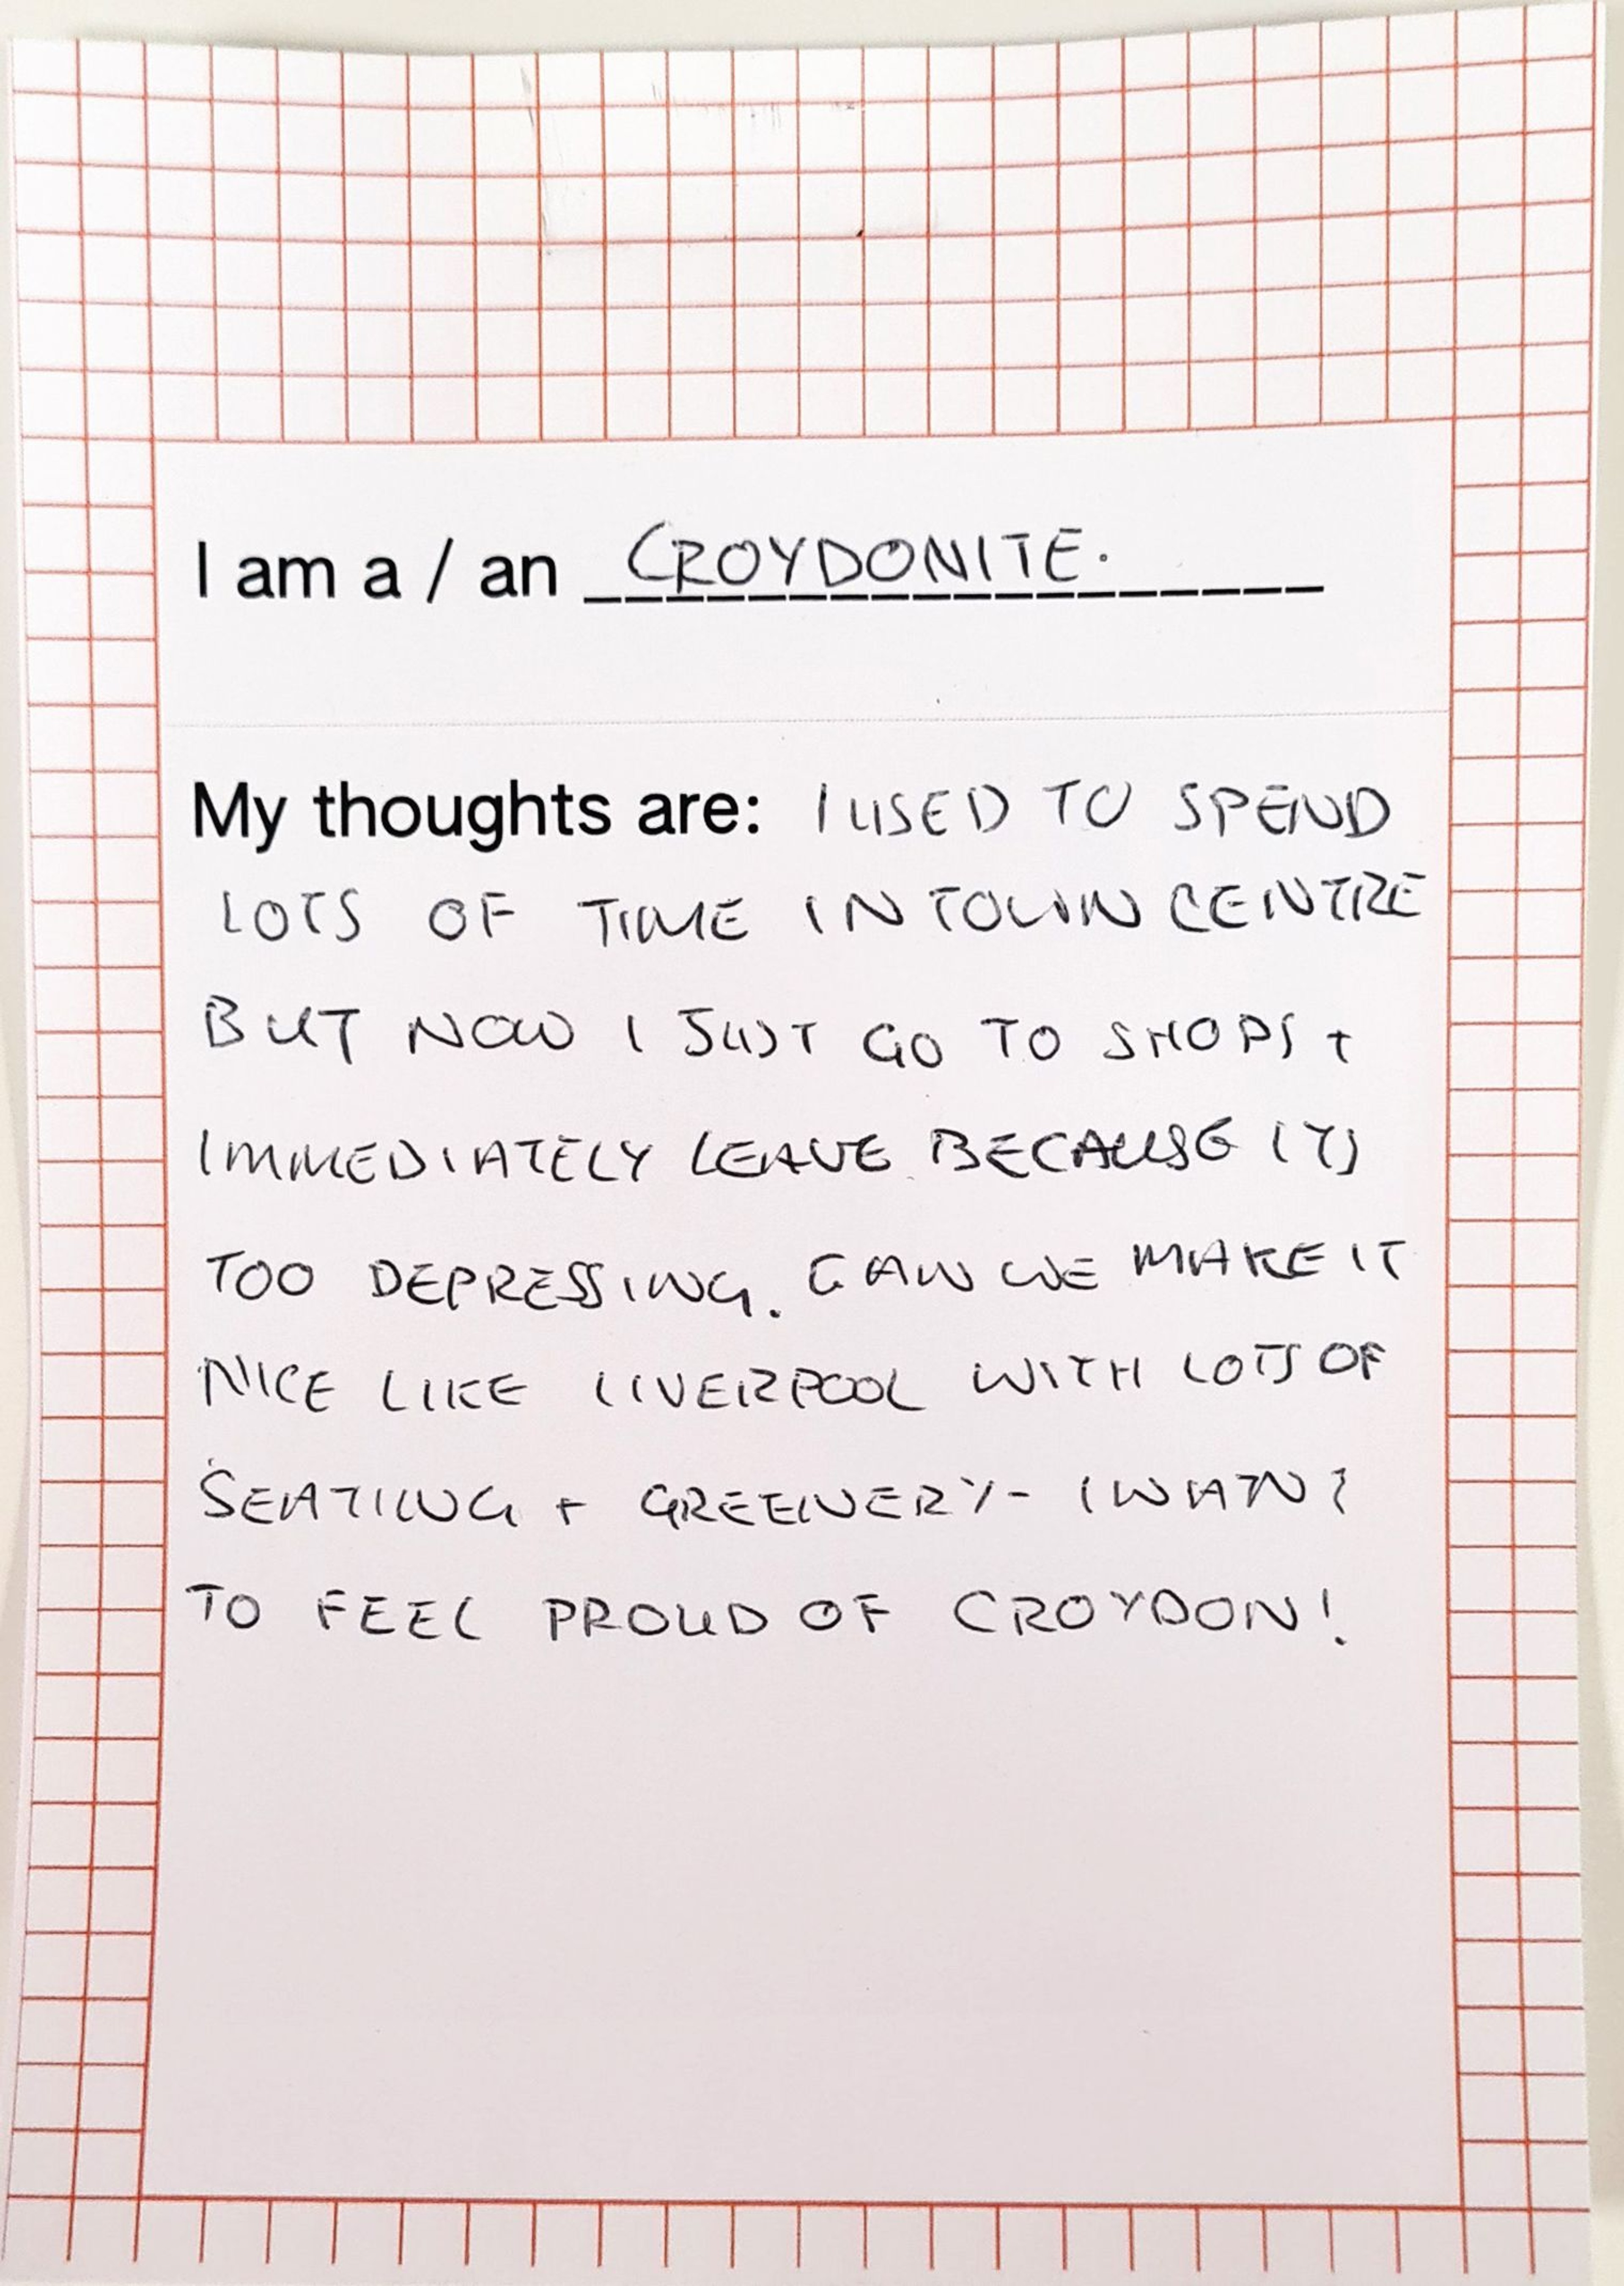 I am a / an CROYDONITE.
My thoughts are: I USED TO SPEND
LOTS OF TIME IN TOWN CENTRE
BUT NOW I JUST GO TO SHOPS +
IMMEDIATELY LEAVE BECAUSE ITS
TOO DEPRESSING. CAN WE MAKE IT
NICE LIKE LIVERPOOL WITH LOTS OF
SEATING + GREENERY - I WANT
TO FEEL PROUD OF CROYDON!